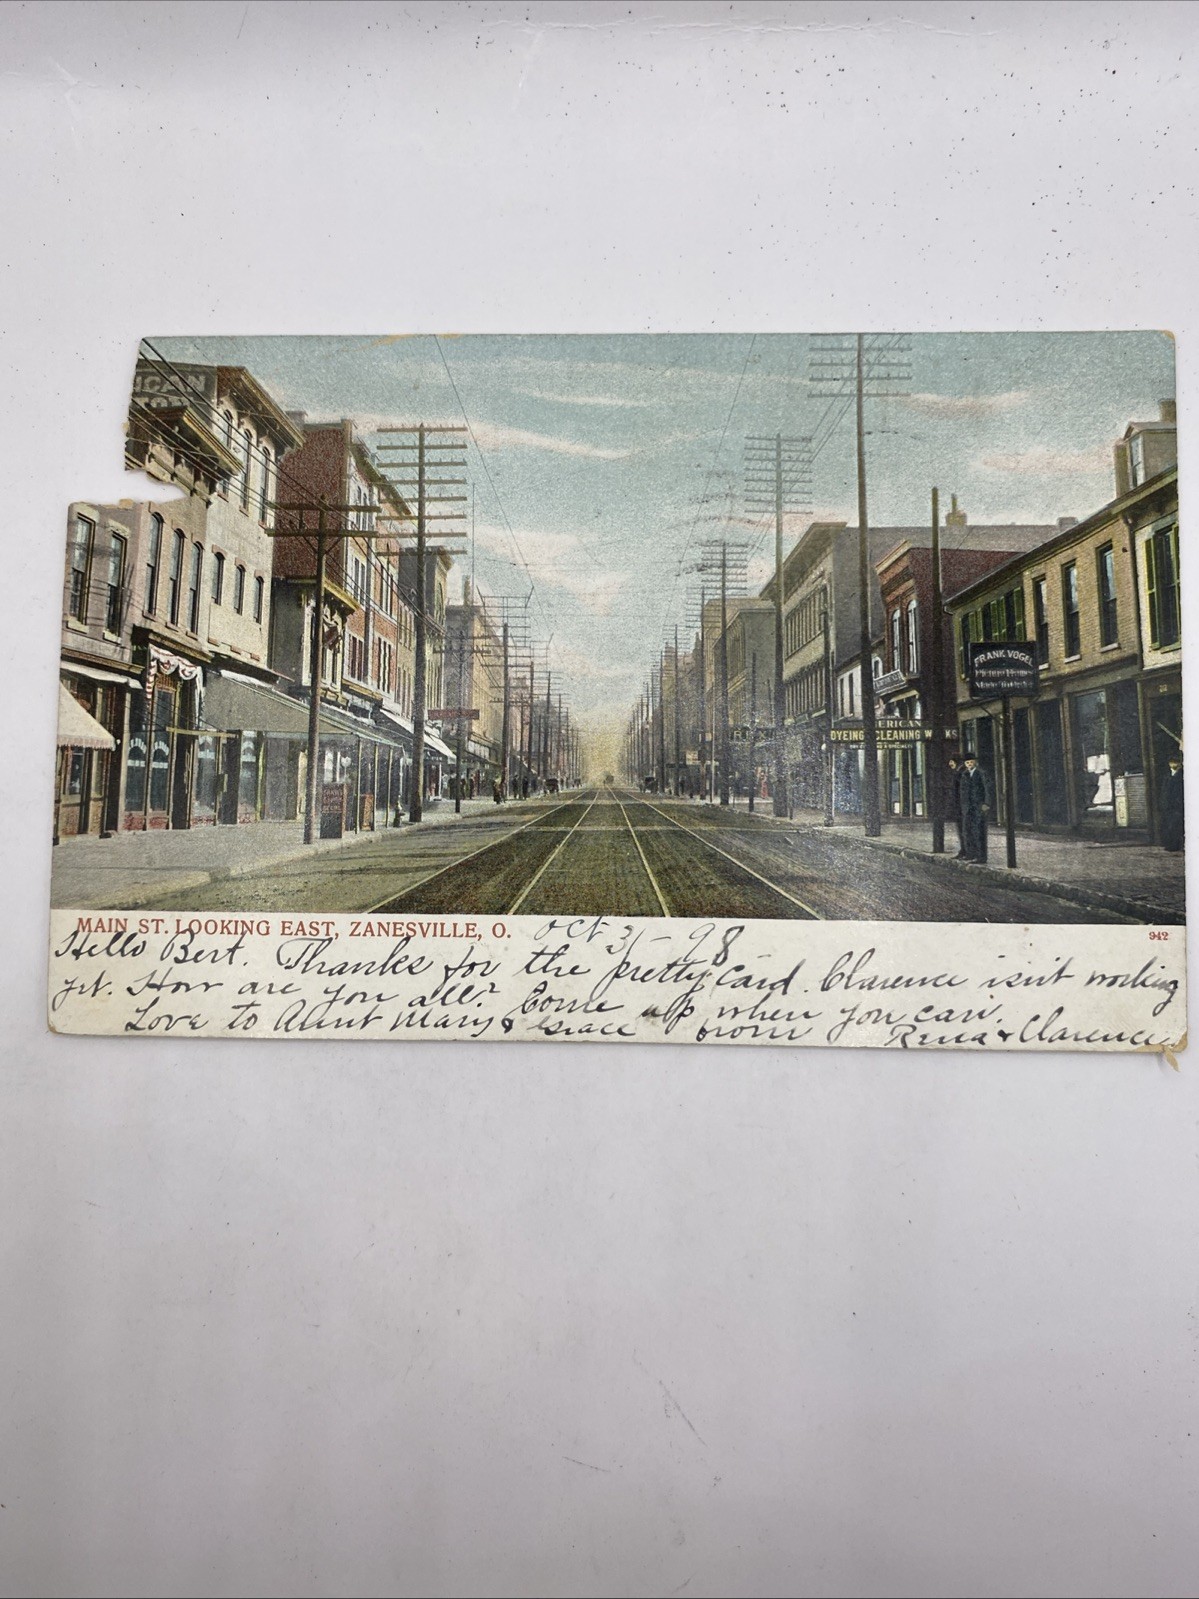 ICAN
FRANK VOGEL
ERICAN
DYEING CLEANING W KS
MAIN ST. LOOKING EAST, ZANESVILLE, O.
Oct 31 - 98
942
Hello Bert. Thanks for the pretty card. Clarence isn't working
yet. How are you all? Come up when you can.
Love to Aunt Mary & Grace from Rena & Clarence